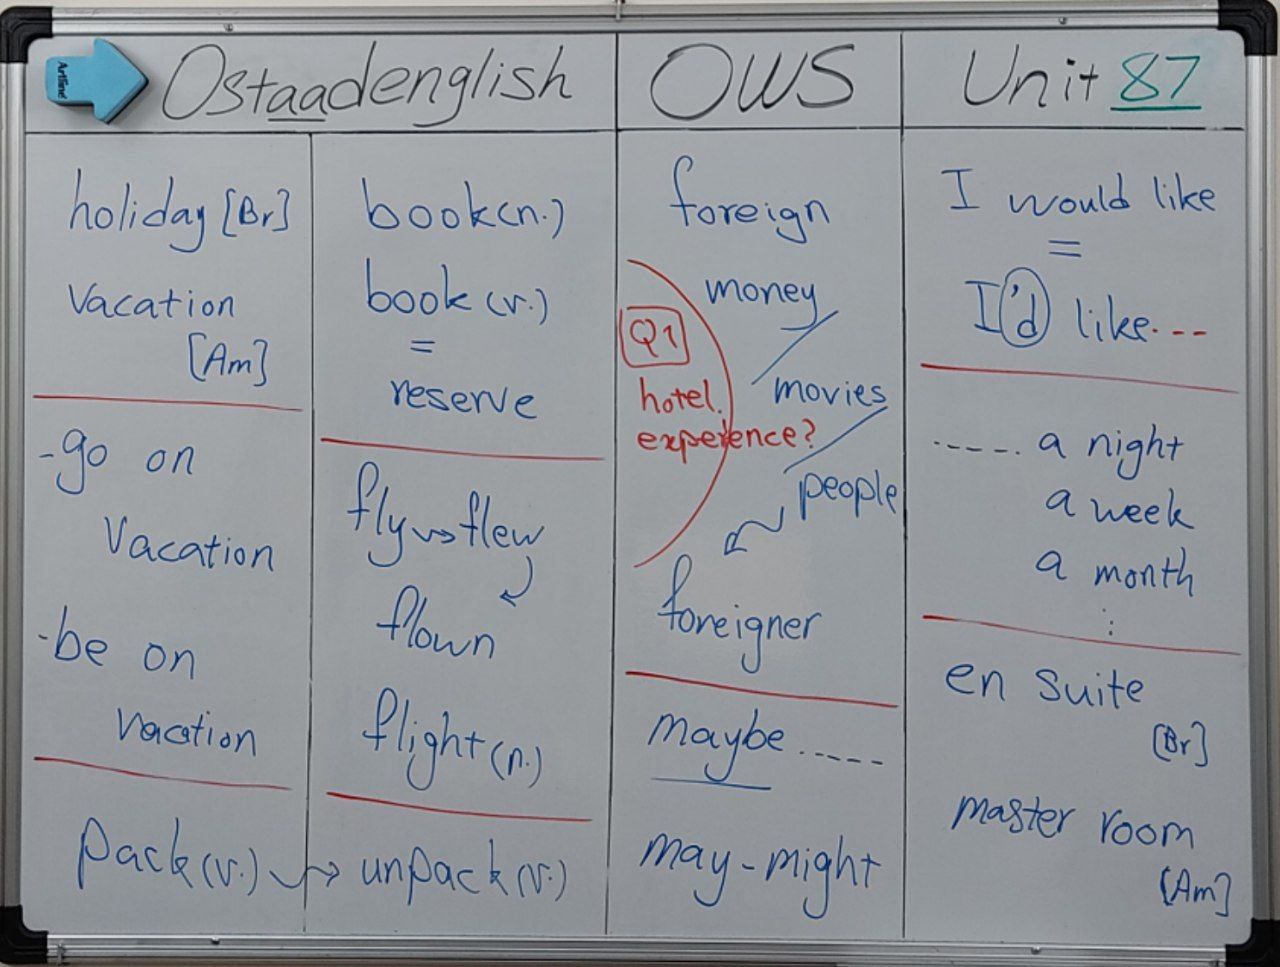 Artline
Ostaadenglish
OWS
Unit 87
holiday [Br]
vacation
[Am]
-go on
vacation
-be on
vacation
pack (v.)
book (n.)
book (v.)
=
reserve
fly flew
flown
flight (n.)
unpack (v.)
foreign
money
movies
people
Q1
hotel.
experience?
foreigner
maybe .....
may-might
I would like
=
I'd like....
..... a night
a week
a month
⋮
en suite
[Br]
master room
[Am]